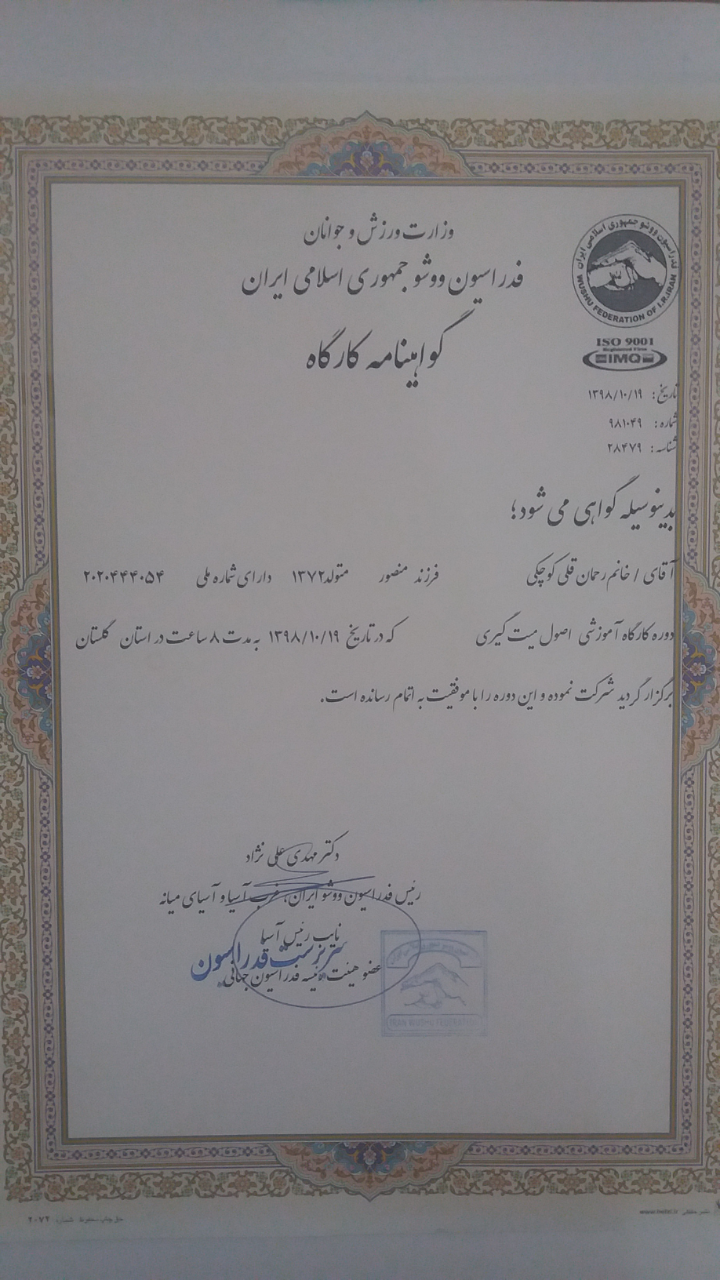 وزارت ورزش و جوانان
فدراسیون ووشو جمهوری اسلامی ایران
گواهینامه کارگاه
فدراسیون ووشو جمهوری اسلامی ایران
WUSHU FEDERATION OF I.R.IRAN
ISO 9001
IMQ
تاریخ: ۱۳۹۸/۱۰/۱۹
شماره: ۹۸۱۰۴۹
شناسه: ۲۸۴۷۹
بدینوسیله گواهی می شود؛
آقای / خانم رحمان قلی کوچکی فرزند منصور متولد ۱۳۷۲ دارای شماره ملی ۲۰۲۰۴۴۴۰۵۴
دوره کارگاه آموزشی اصول میت گیری که در تاریخ ۱۳۹۸/۱۰/۱۹ به مدت ۸ ساعت در استان گلستان
برگزار گردید شرکت نموده و این دوره را با موفقیت به اتمام رسانده است.
دکتر مهدی علی نژاد
رئیس فدراسیون ووشو ایران، غرب آسیا و آسیای میانه
نایب رئیس آسیا
سرپرست فدراسیون
عضو هیئت رئیسه فدراسیون جهانی
IRAN WUSHU FEDERATION
حق چاپ محفوظ شماره ۲۰۷۲